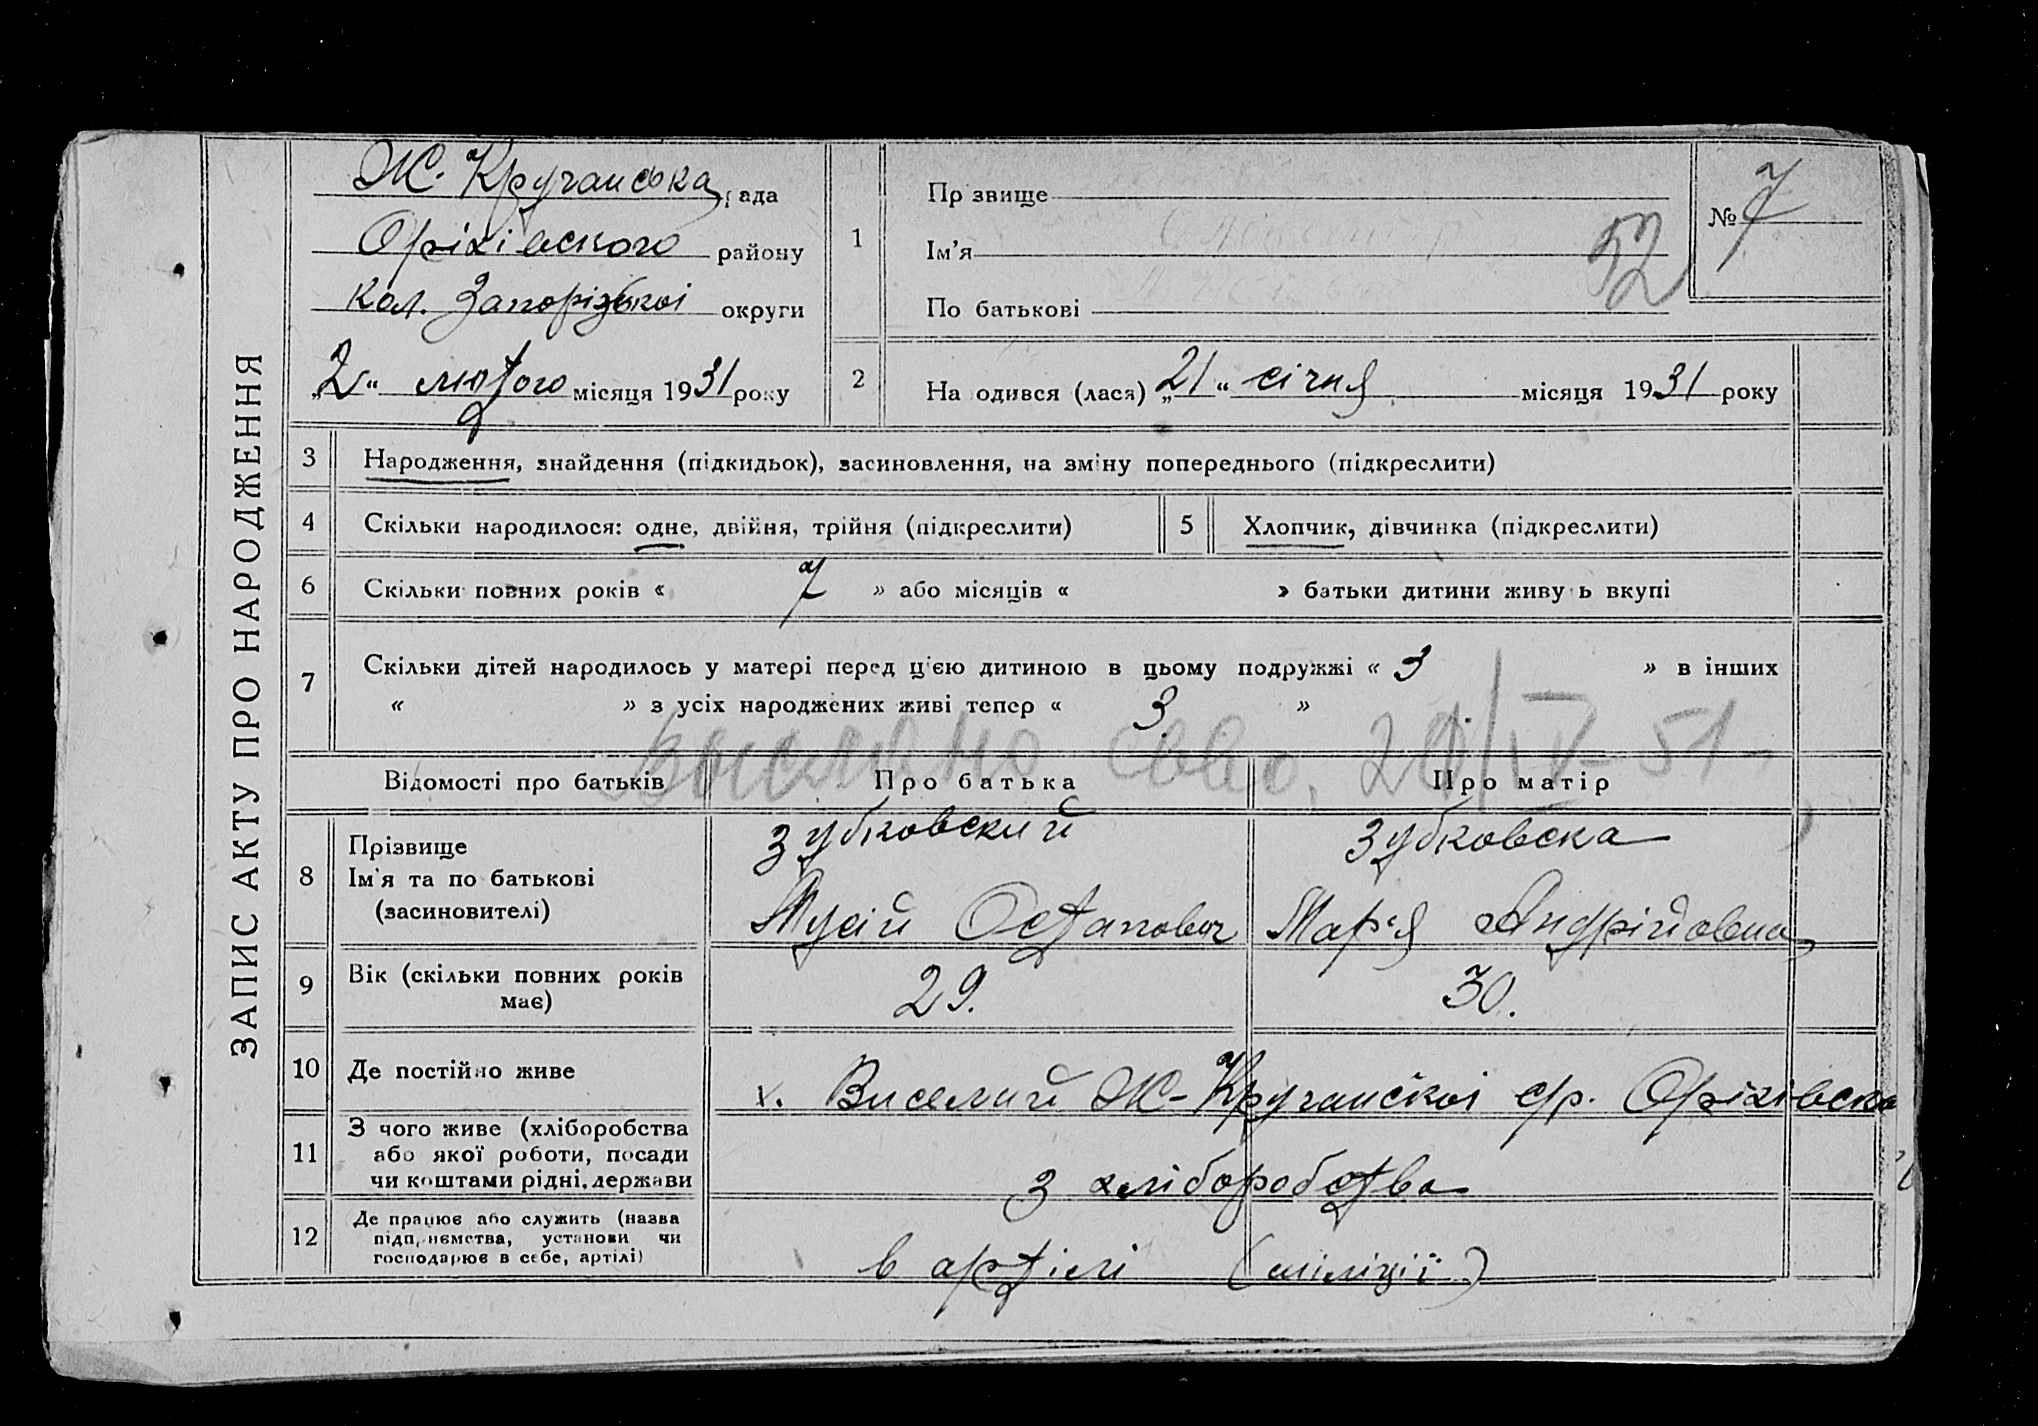 ЗАПИС АКТУ ПРО НАРОДЖЕННЯ
Ж. Кручанська рада
Оріхівского району
кол. Запорізької округи
„2“ лютого місяця 1931 року
1
Прізвище
Ім'я
По батькові
52
№ 7
2
Народився (лася) „21“ січня місяця 1931 року
3 Народження, знайдення (підкидьок), засиновлення, на зміну попереднього (підкреслити)
4 Скільки народилося: одне, двійня, трійня (підкреслити) 5 Хлопчик, дівчинка (підкреслити)
6 Скільки повних років « 7 » або місяців « » батьки дитини живуть вкупі
7 Скільки дітей народилось у матері перед цією дитиною в цьому подружжі « 3 » в інших
« » з усіх народжених живі тепер « 3 »
выслано
Відомості про батьків Про батька Про матір
8 Прізвище
Ім'я та по батькові
(засиновителі)
Зубковский
Мусій Остапович
Зубковска
Мар'я Андрійовна
9 Вік (скільки повних років
має)
29. 30.
10 Де постійно живе х. Виселий Ж-Кручанскої с/р. Оріхівско
11 З чого живе (хліборобства
або якої роботи, посади
чи коштами рідні, держави
з хліборобства
12 Де працює або служить (назва
підприємства, установи чи
господарює в себе, артілі)
в артілі (міліції)